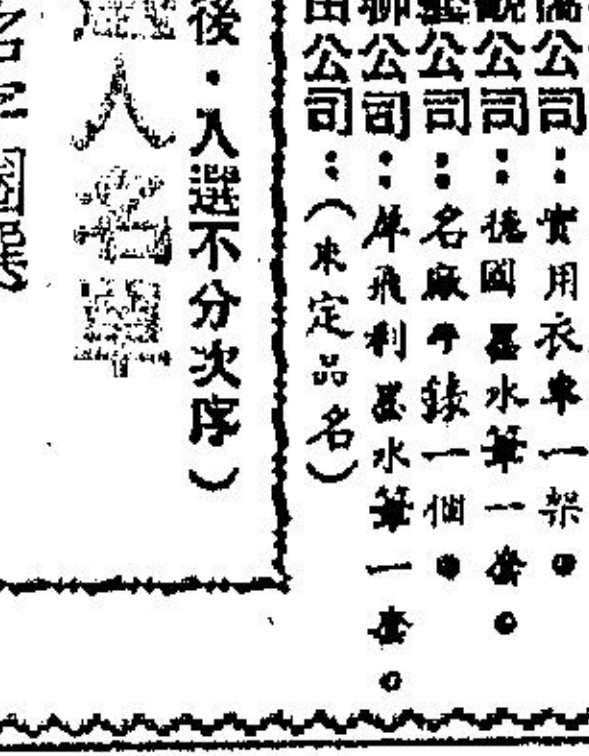 公司：實用衣車一架。
公司：德國墨水筆一套。
公司：名廠手錶一個。
公司：犀飛利墨水筆一套。
公司：（未定品名）
後・入選不分次序）
人名單